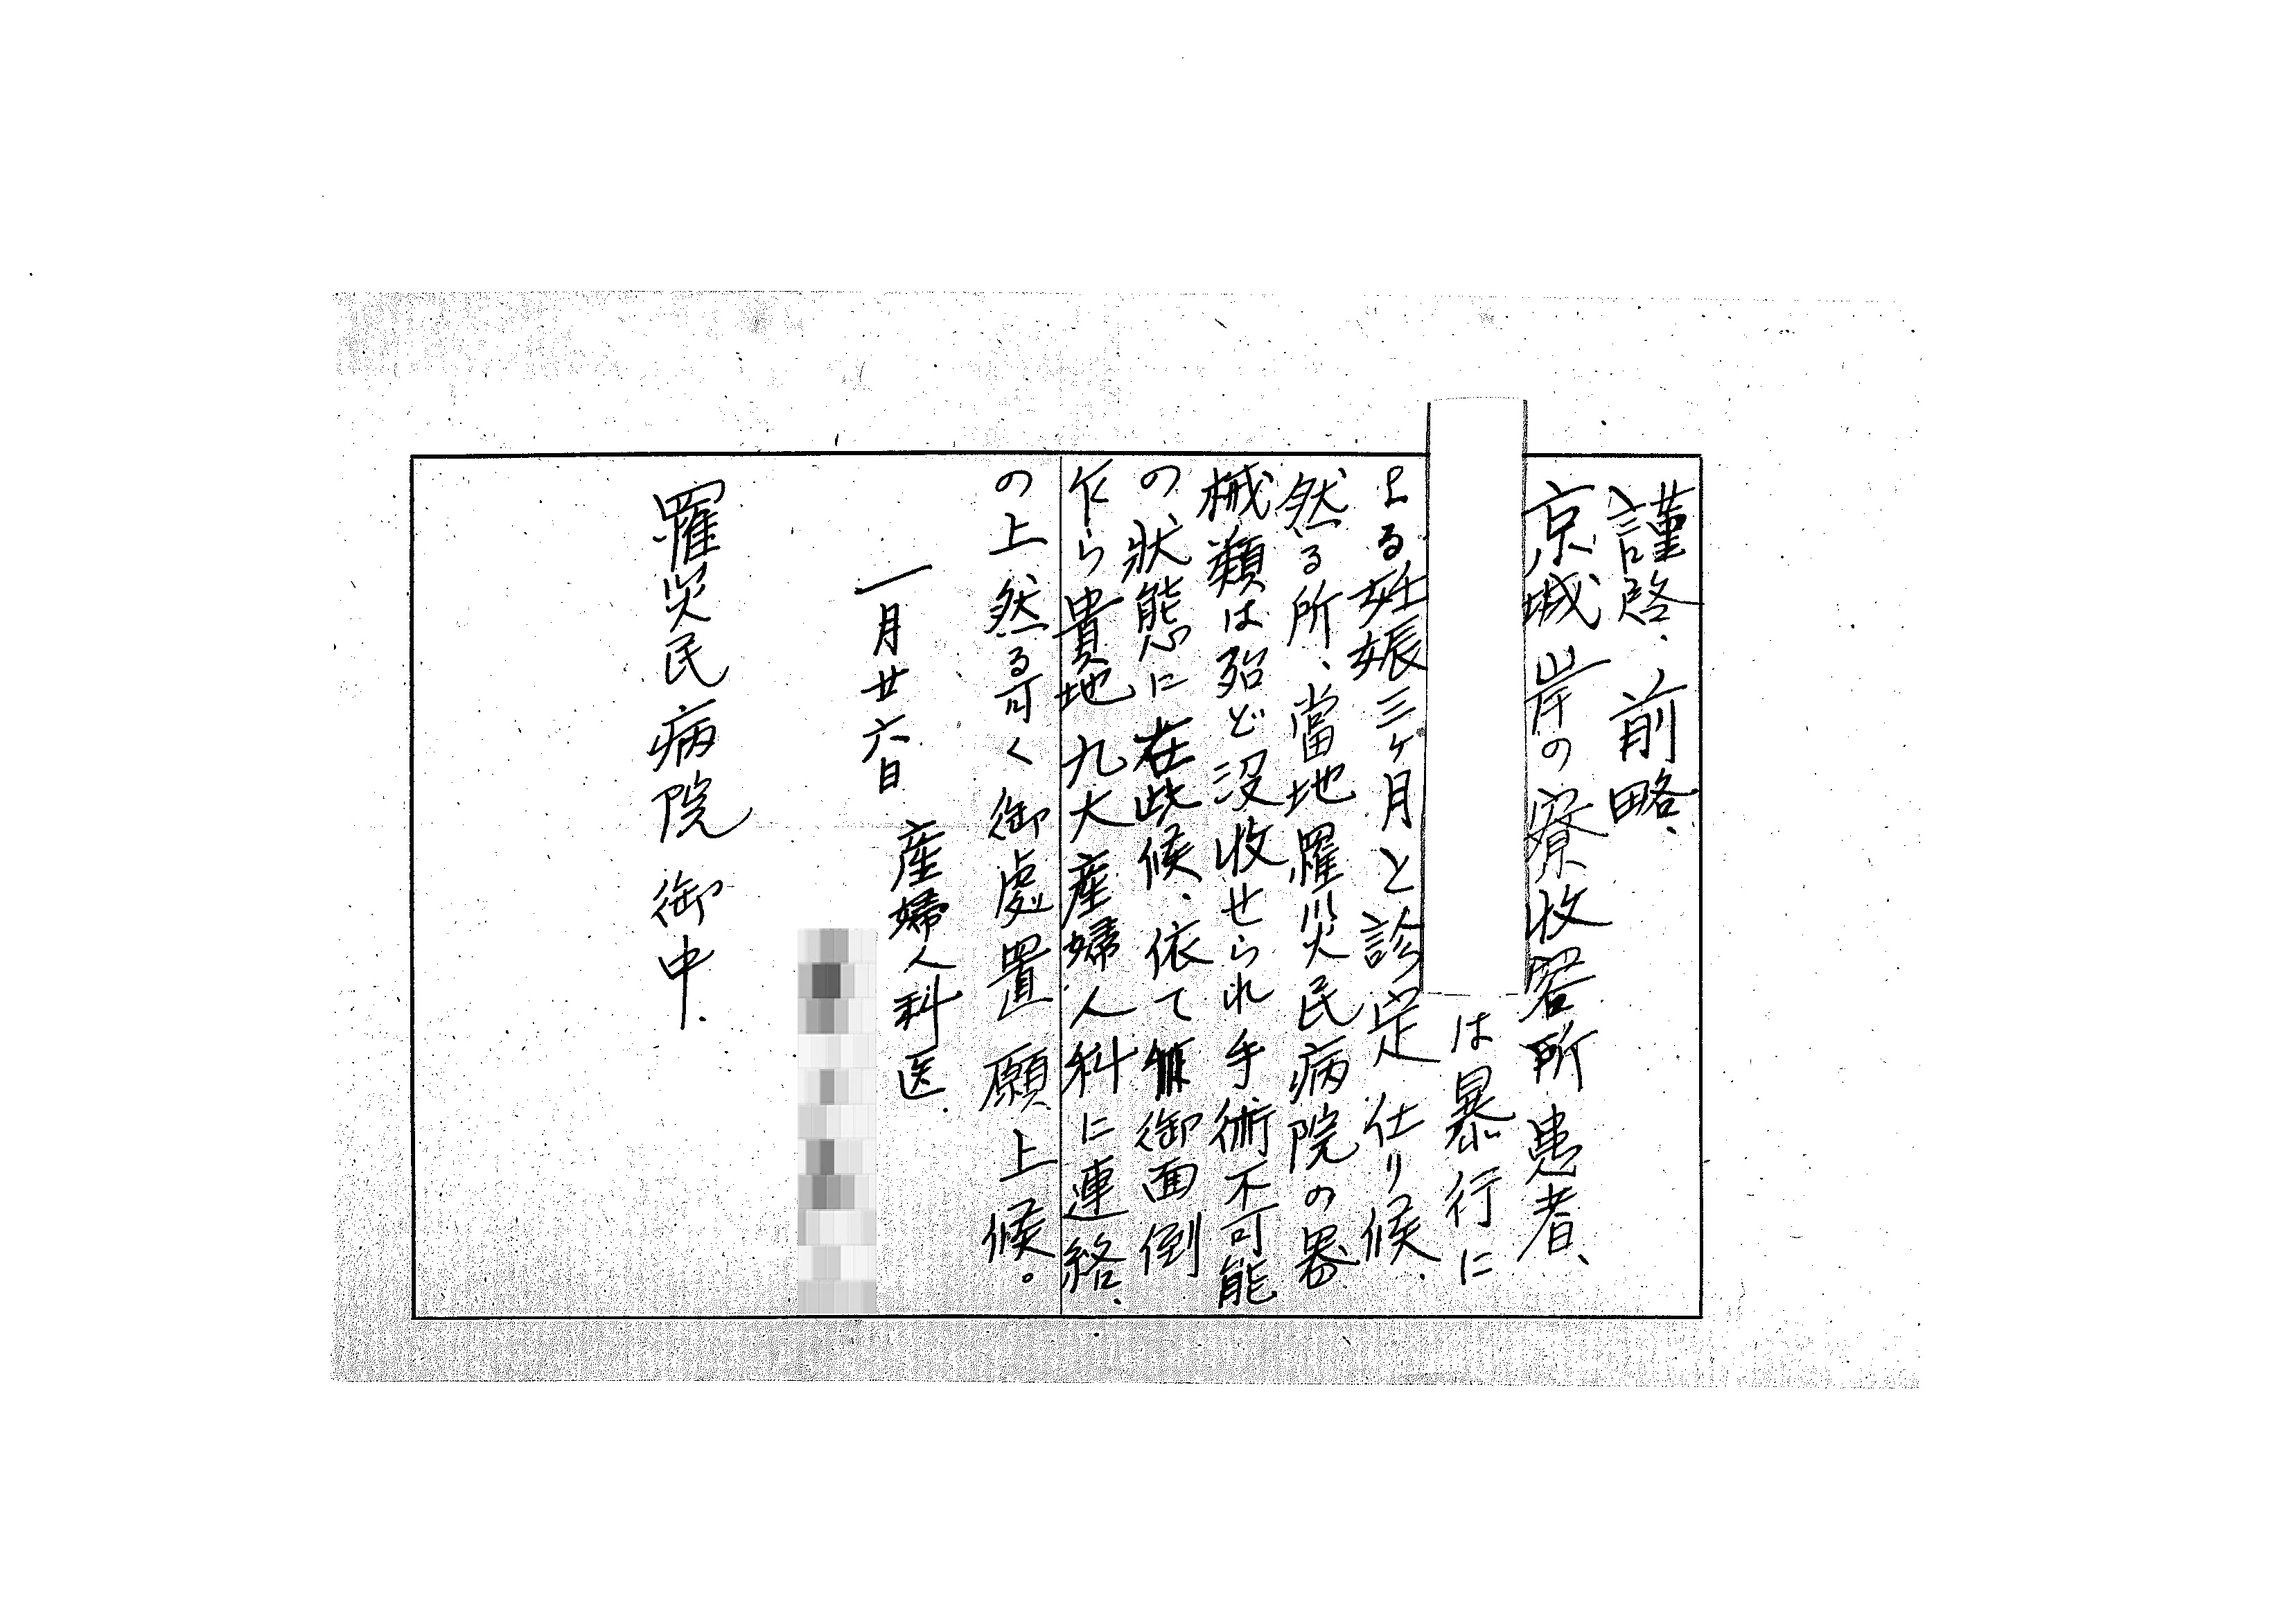 謹啓、前略、
京城岸の寮收容所患者、
は暴行に
よる妊娠三ヶ月と診定仕り候、
然る所、當地罹災民病院の器
械類は殆ど没收せられ手術不可能
の狀態に在此候、依て御面倒
乍ら貴地九大産婦人科に連絡、
の上然る可く御處置願上候。
一月廿六日
産婦人科医
罹災民病院 御中